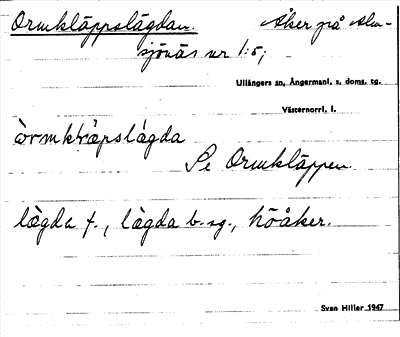 Ormkläppslägdan. Åker på Alm-
sjönäs nr 1:5;
Ullångers sn, Ångermanl. s. doms. tg.
Västernorrl. l.
òrmkḷäpslǻgda
Se Ormkläppen.
lägda f., lägda b. sg., höåker.
Sven Hiller 1947